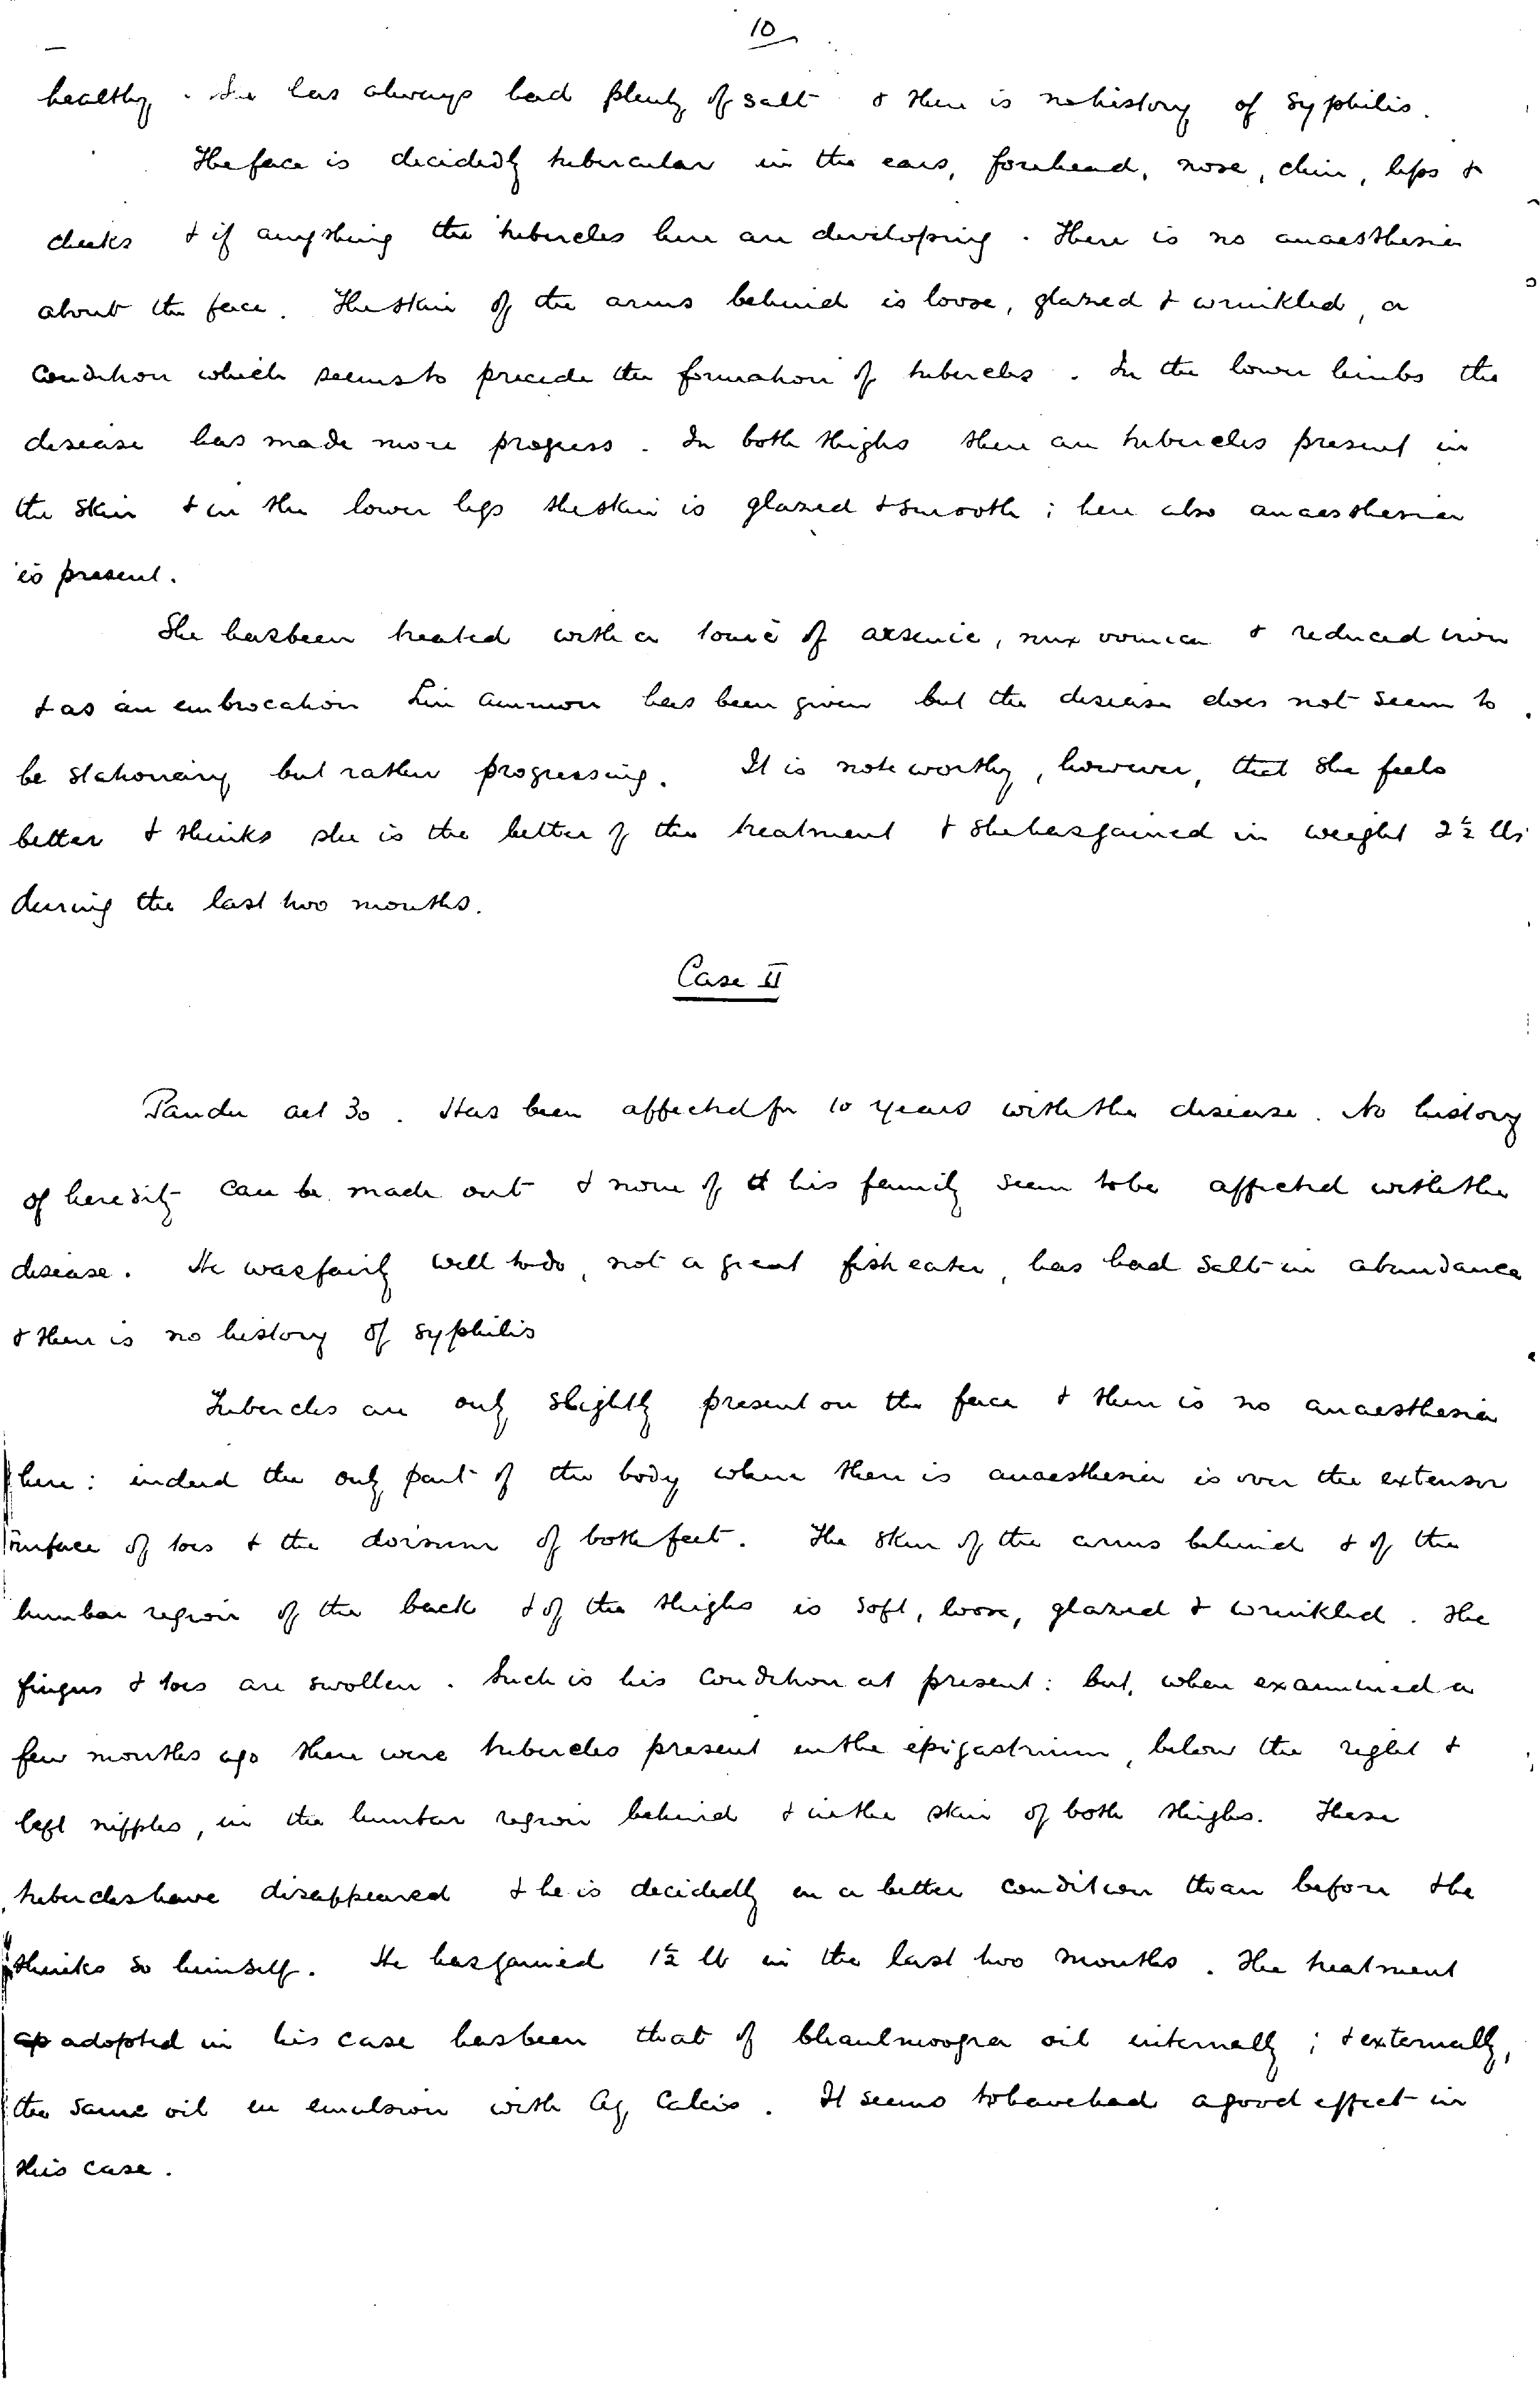 10
healthy. She has always had plenty of salt & there is no history of syphilis.
The face is decidedly tubercular in the ears, forehead, nose, chin, lips &
cheeks & if anything the tubercles here are developing. There is no anaesthesia
about the face. The skin of the arms behind is loose, glazed & wrinkled, a
condition which seems to precede the formation of tubercles. In the lower limbs the
disease has made more progress. In both thighs there are tubercles present in
the skin & in the lower legs the skin is glazed & smooth; here also anaesthesia
is present.
She has been treated with a tonic of arsenic, nux vomica & reduced iron
& as an embrocation Lin Ammon has been given but the disease does not seem to
be stationary but rather progressing. It is noteworthy, however, that she feels
better & thinks she is the better of the treatment & she has gained in weight 2½ lbs
during the last two months.
Case II
Pandu aet 30. Has been affected for 10 years with the disease. No history
of heredity can be made out & none of his family seem to be affected with the
disease. He was fairly well to do, not a great fish eater, has had salt in abundance
& there is no history of syphilis
Tubercles are only slightly present on the face & there is no anaesthesia
here: indeed the only part of the body where there is anaesthesia is over the extensor
surface of toes & the dorsum of both feet. The skin of the arms behind & of the
lumbar region of the back & of the thighs is soft, loose, glazed & wrinkled. The
fingers & toes are swollen. Such is his condition at present: but, when examined a
few months ago there were tubercles present in the epigastrium, below the right &
left nipples, in the lumbar region behind & in the skin of both thighs. These
tubercles have disappeared & he is decidedly in a better condition than before & he
thinks so himself. He has gained 1½ lb in the last two months. The treatment
ap adopted in his case has been that of bhaulmoogra oil internally; & externally,
the same oil in emulsion with Aq Calcis. It seems to have had a good effect in
this case.